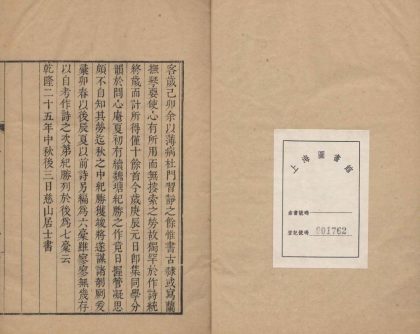 客歲己卯余以薄病杜門習靜之餘雖書古隸或寫蘭
撫琴要使心有所用而無按索之勞故獨罕於作詩統
終歲而計所得僅十餘首今歲庚辰元日卽集同學分
韻於問心庵夏初有續魏塘紀勝之作竟日握管凝思
頗不自知其勞迄秋之中紀勝獲竣將遂謀諸剞劂爰
彙卯春以後辰夏以前詩另編爲六稾雖寥寥無幾存
以自考作詩之次第紀勝列於後爲七稾云
乾隆二十五年中秋後三日慈山居士書
上海圖書館
索書號碼
登記號碼 901762